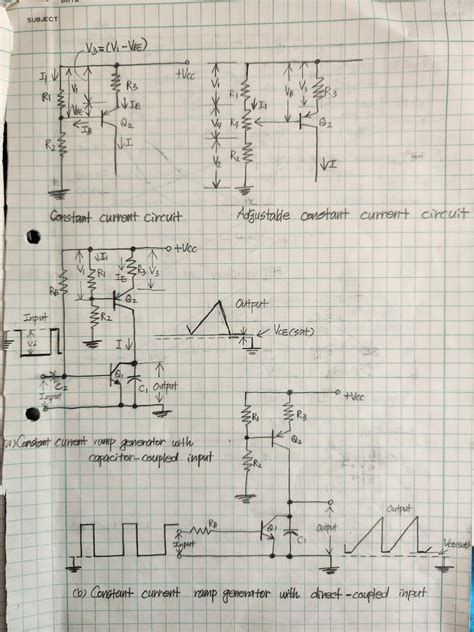 SUBJECT
V3=(V1-VBE)
+Vcc
I1
V1
R3
R1
VBE
IE
IB
Q2
R2
I
Constant current circuit
+Vcc
V1
R1
I1
VB
V3
R3
V4
R4
Q2
V2
R2
I
Adjustable constant current circuit
+Vcc
I1
V1
R1
IE
R3
V3
RB
Q2
R2
Output
Input
Vi
I
VCE(sat)
Q1
C1
Output
C2
Input
(a) Constant current ramp generator with
capacitor-coupled input
+Vcc
R1
R3
Q2
R2
RB
Input
Q1
C1
Output
Output
VCE(sat)
(b) Constant current ramp generator with direct-coupled input